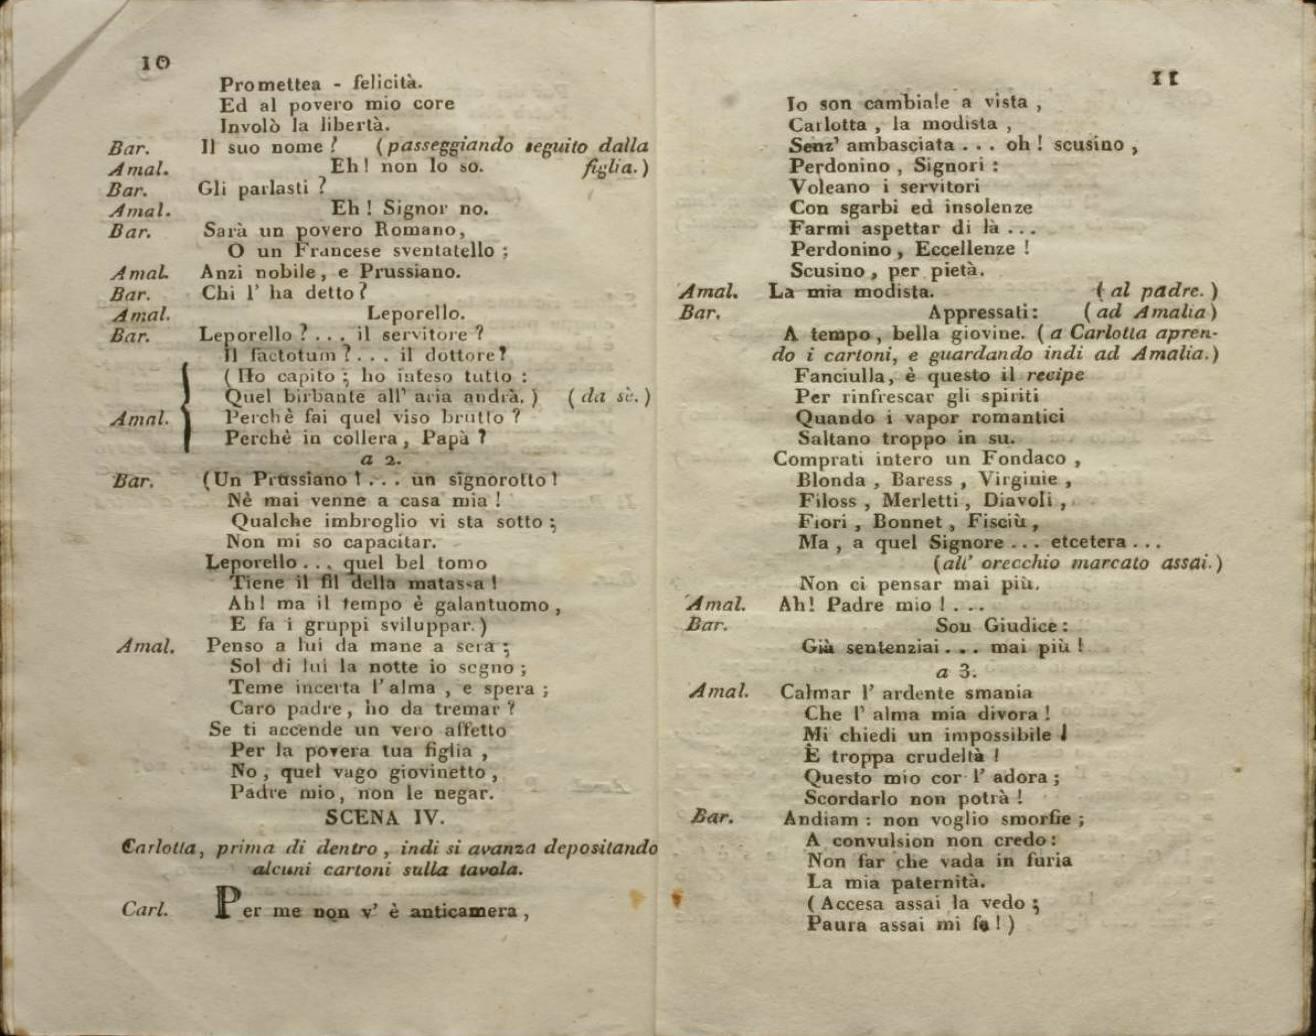 10
Promettea - felicità.
Ed al povero mio core
Involò la libertà.
Bar. Il suo nome? (passeggiando seguito dalla
Amal. Eh! non lo so. figlia.)
Bar. Gli parlasti?
Amal. Eh! Signor no.
Bar. Sarà un povero Romano,
O un Francese sventatello;
Amal. Anzi nobile, e Prussiano.
Bar. Chi l' ha detto?
Amal. Leporello.
Bar. Leporello?... il servitore?
Il factotum?... il dottore?
(Ho capito; ho inteso tutto:
Quel birbante all' aria andrà.) (da sè.)
Amal. Perchè fai quel viso brutto?
Perchè in collera, Papà?
a 2.
Bar. (Un Prussiano!... un signorotto!
Nè mai venne a casa mia!
Qualche imbroglio vi sta sotto;
Non mi so capacitar.
Leporello... quel bel tomo
Tiene il fil della matassa!
Ah! ma il tempo è galantuomo,
E fa i gruppi sviluppar.)
Amal. Penso a lui da mane a sera;
Sol di lui la notte io sogno;
Teme incerta l' alma, e spera;
Caro padre, ho da tremar?
Se ti accende un vero affetto
Per la povera tua figlia,
No, quel vago giovinetto,
Padre mio, non le negar.
SCENA IV.
Carlotta, prima di dentro, indi si avanza depositando
alcuni cartoni sulla tavola.
Carl. Per me non v' è anticamera,
11
Io son cambiale a vista,
Carlotta, la modista,
Senz' ambasciata... oh! scusino,
Perdonino, Signori:
Voleano i servitori
Con sgarbi ed insolenze
Farmi aspettar di là...
Perdonino, Eccellenze!
Scusino, per pietà.
Amal. La mia modista. (al padre.)
Bar. Appressati: (ad Amalia)
A tempo, bella giovine. (a Carlotta apren-
do i cartoni, e guardando indi ad Amalia.)
Fanciulla, è questo il recipe
Per rinfrescar gli spiriti
Quando i vapor romantici
Saltano troppo in su.
Comprati intero un Fondaco,
Blonda, Baress, Virginie,
Filoss, Merletti, Diavoli,
Fiori, Bonnet, Fisciù,
Ma, a quel Signore... etcetera...
(all' orecchio marcato assai.)
Non ci pensar mai più.
Amal. Ah! Padre mio!...
Bar. Son Giudice:
Già sentenziai... mai più!
a 3.
Amal. Calmar l' ardente smania
Che l' alma mia divora!
Mi chiedi un impossibile!
È troppa crudeltà!
Questo mio cor l' adora;
Scordarlo non potrà!
Bar. Andiam: non voglio smorfie;
A convulsion non credo:
Non far che vada in furia
La mia paternità.
(Accesa assai la vedo;
Paura assai mi fa!)